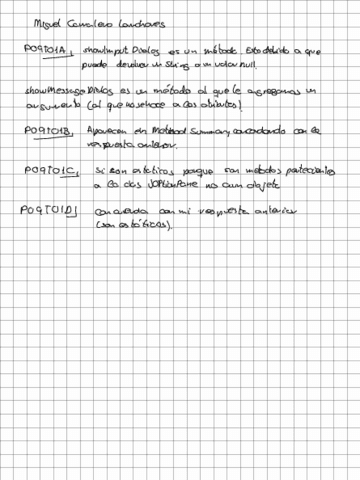 Miguel Carralero Lanchares
P09T01A, showInput Dialog es un método. Esto debido a que
puede devolver un String o un valor null.
showMessage Dialog es un método al que le agregamos un
argumento (al que no señoce a los atributos)
P09T01B, Aparecen en Method Summary concordando con la
respuesta anterior.
P09T01C, Si son estáticos porque son métodos pertenecientes
a la clas JOptionPane no a un objeto
P09T01D, Concuerda con mi respuesta anterior
(son estáticos).